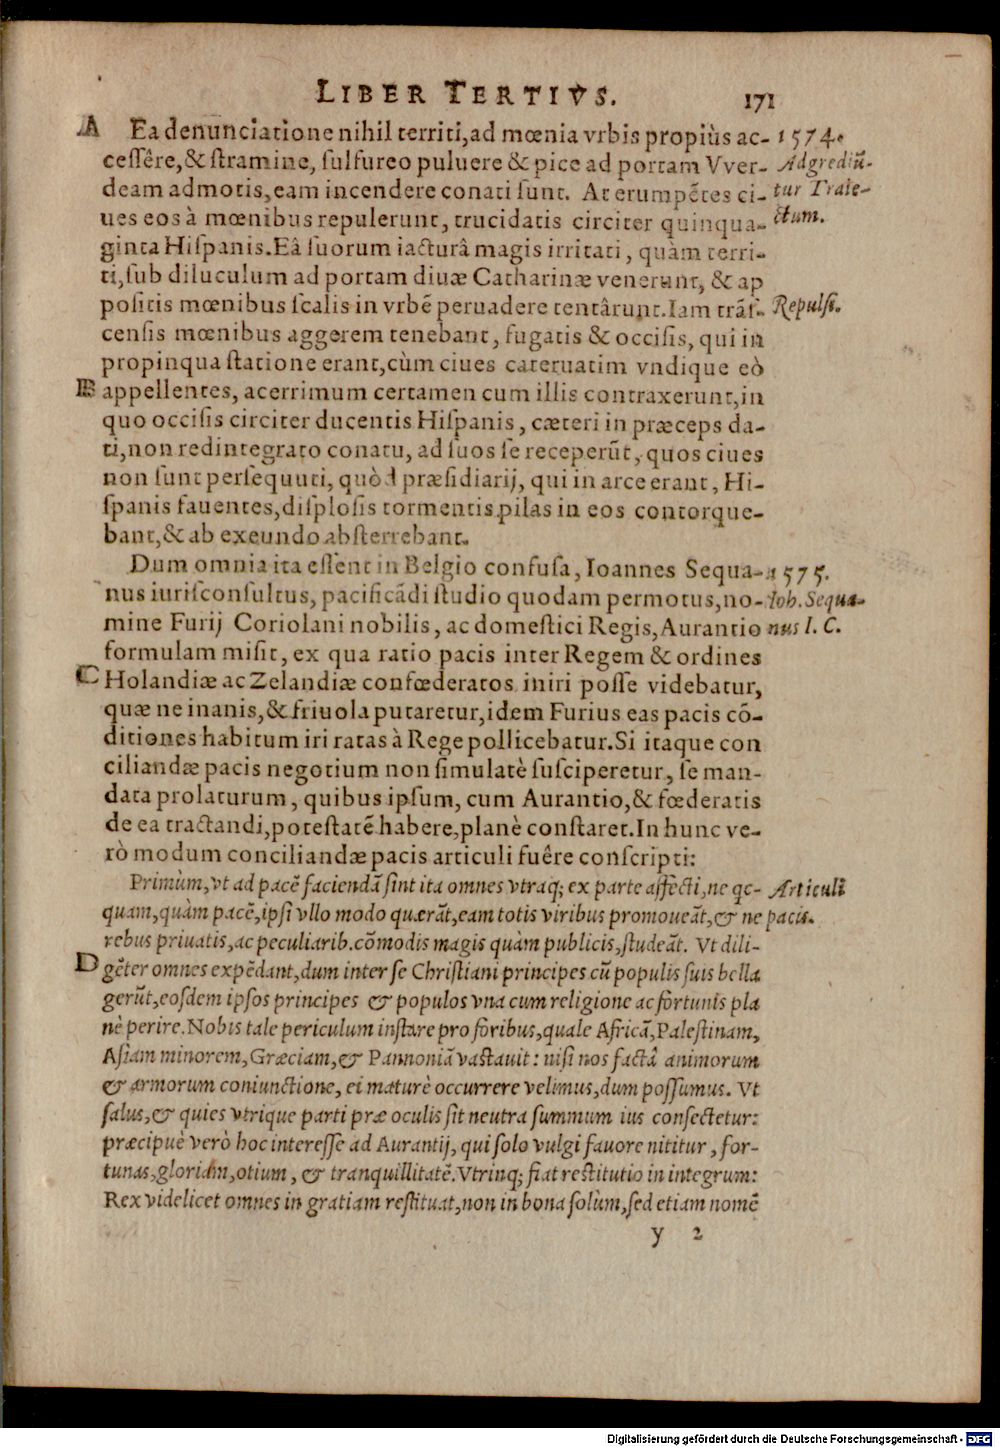 LIBER TERTIVS. 171
A Ea denunciatione nihil territi, ad mœnia vrbis propiùs ac- 1574.
cessêre, & stramine, sulfureo puluere & pice ad portam Vver- Adgrediū-
deam admotis, eam incendere conati sunt. At erumpẽtes ci- tur Traie-
ues eos à mœnibus repulerunt, trucidatis circiter quinqua- ctum.
ginta Hispanis. Eâ suorum iacturâ magis irritati, quàm terri-
ti, sub diluculum ad portam diuæ Catharinæ venerunt, & ap
positis mœnibus scalis in vrbẽ peruadere tentârunt. Iam trãs- Repulsi.
censis mœnibus aggerem tenebant, fugatis & occisis, qui in
propinqua statione erant, cùm ciues cateruatim vndique eò
B appellentes, acerrimum certamen cum illis contraxerunt, in
quo occisis circiter ducentis Hispanis, cæteri in præceps da-
ti, non redintegrato conatu, ad suos se receperũt, quos ciues
non sunt persequuti, quòd præsidiarij, qui in arce erant, Hi-
spanis fauentes, displosis tormentis pilas in eos contorque-
bant, & ab exeundo absterrebant.
Dum omnia ita essent in Belgio confusa, Ioannes Sequa- 1575.
nus iurisconsultus, pacificãdi studio quodam permotus, no- Ioh. Sequa-
mine Furij Coriolani nobilis, ac domestici Regis, Aurantio nus I. C.
formulam misit, ex qua ratio pacis inter Regem & ordines
C Holandiæ ac Zelandiæ confœderatos iniri posse videbatur,
quæ ne inanis, & friuola putaretur, idem Furius eas pacis cõ-
ditiones habitum iri ratas à Rege pollicebatur. Si itaque con
ciliandæ pacis negotium non simulatè susciperetur, se man-
data prolaturum, quibus ipsum, cum Aurantio, & fœderatis
de ea tractandi, potestatẽ habere, planè constaret. In hunc ve-
rò modum conciliandæ pacis articuli fuêre conscripti:
Primùm, vt ad pacẽ faciendã sint ita omnes vtraq; ex parte affecti, ne qc- Articuli
quam, quàm pacẽ, ipsi vllo modo quærãt, eam totis viribus promoueãt, & ne pacis.
rebus priuatis, ac peculiarib. cõmodis magis quàm publicis, studeãt. Vt dili-
D gẽter omnes expẽdant, dum inter se Christiani principes cũ populis suis bella
gerũt, eosdem ipsos principes & populos vna cum religione ac fortunis pla
nè perire. Nobis tale periculum instare pro foribus, quale Africã, Palestinam,
Asiam minorem, Græciam, & Pannoniã vastauit: nisi nos factâ animorum
& armorum coniunctione, ei maturè occurrere velimus, dum possumus. Vt
salus, & quies vtrique parti præ oculis sit neutra summum ius consectetur:
præcipuè verò hoc interesse ad Aurantij, qui solo vulgi fauore nititur, for-
tunas, gloriam, otium, & tranquillitatẽ. Vtrinq; fiat restitutio in integrum:
Rex videlicet omnes in gratiam restituat, non in bona solùm, sed etiam nomẽ
y 2
Digitalisierung gefördert durch die Deutsche Forschungsgemeinschaft - DFG